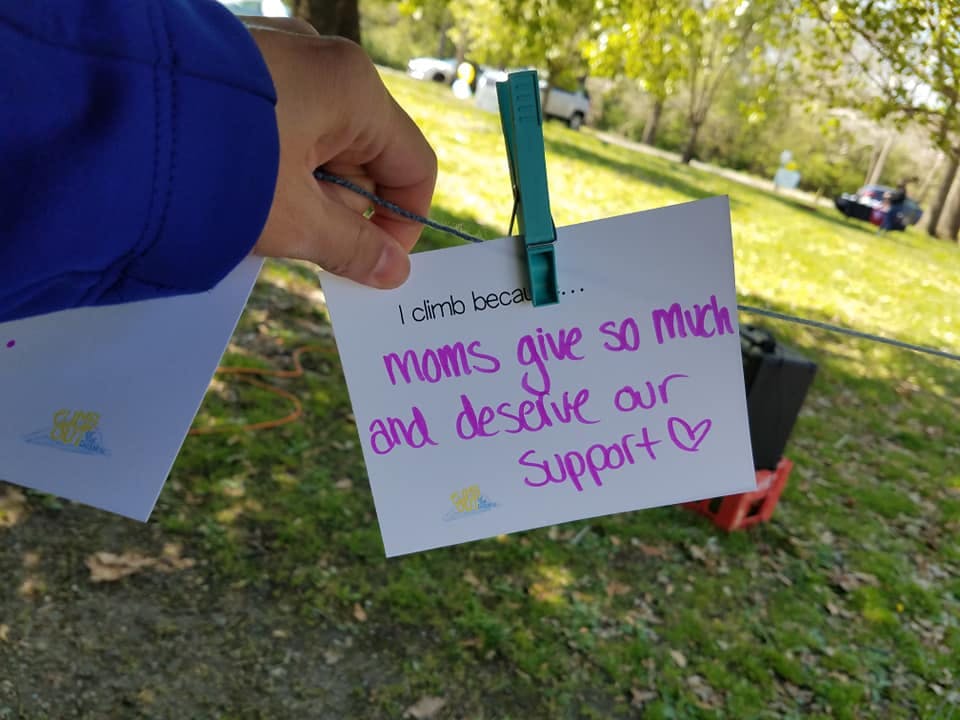 I climb becau...
moms give so much
and deserve our
support ♡
CLIMB
OUT